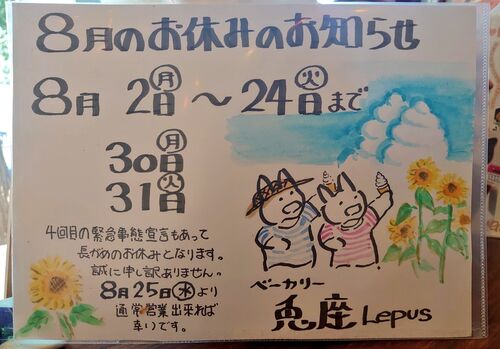 8月のお休みのお知らせ
8月 2日㊊〜24日㊋まで
30日㊊
31日㊋
4回目の緊急事態宣言もあって
長がめのお休みとなります。
誠に申し訳ありません。
8月25日㊌より
通常営業出来れば
幸いです。
ベーカリー
兎座 Lepus